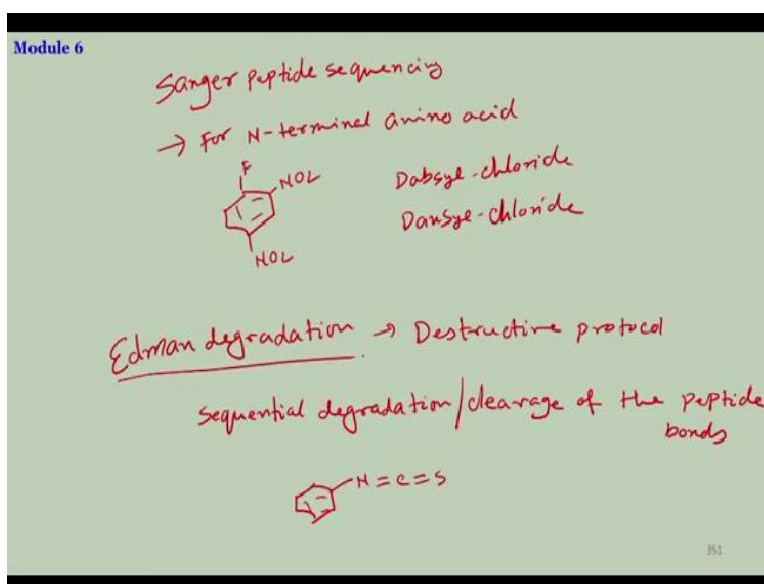 Module 6
Sanger peptide sequencing
→ For N-terminal amino acid
F
NO2
Dabsyl-chloride
Dansyl-chloride
NO2
Edman degradation → Destructive protocol
sequential degradation/cleavage of the peptide
bonds
N=C=S
351